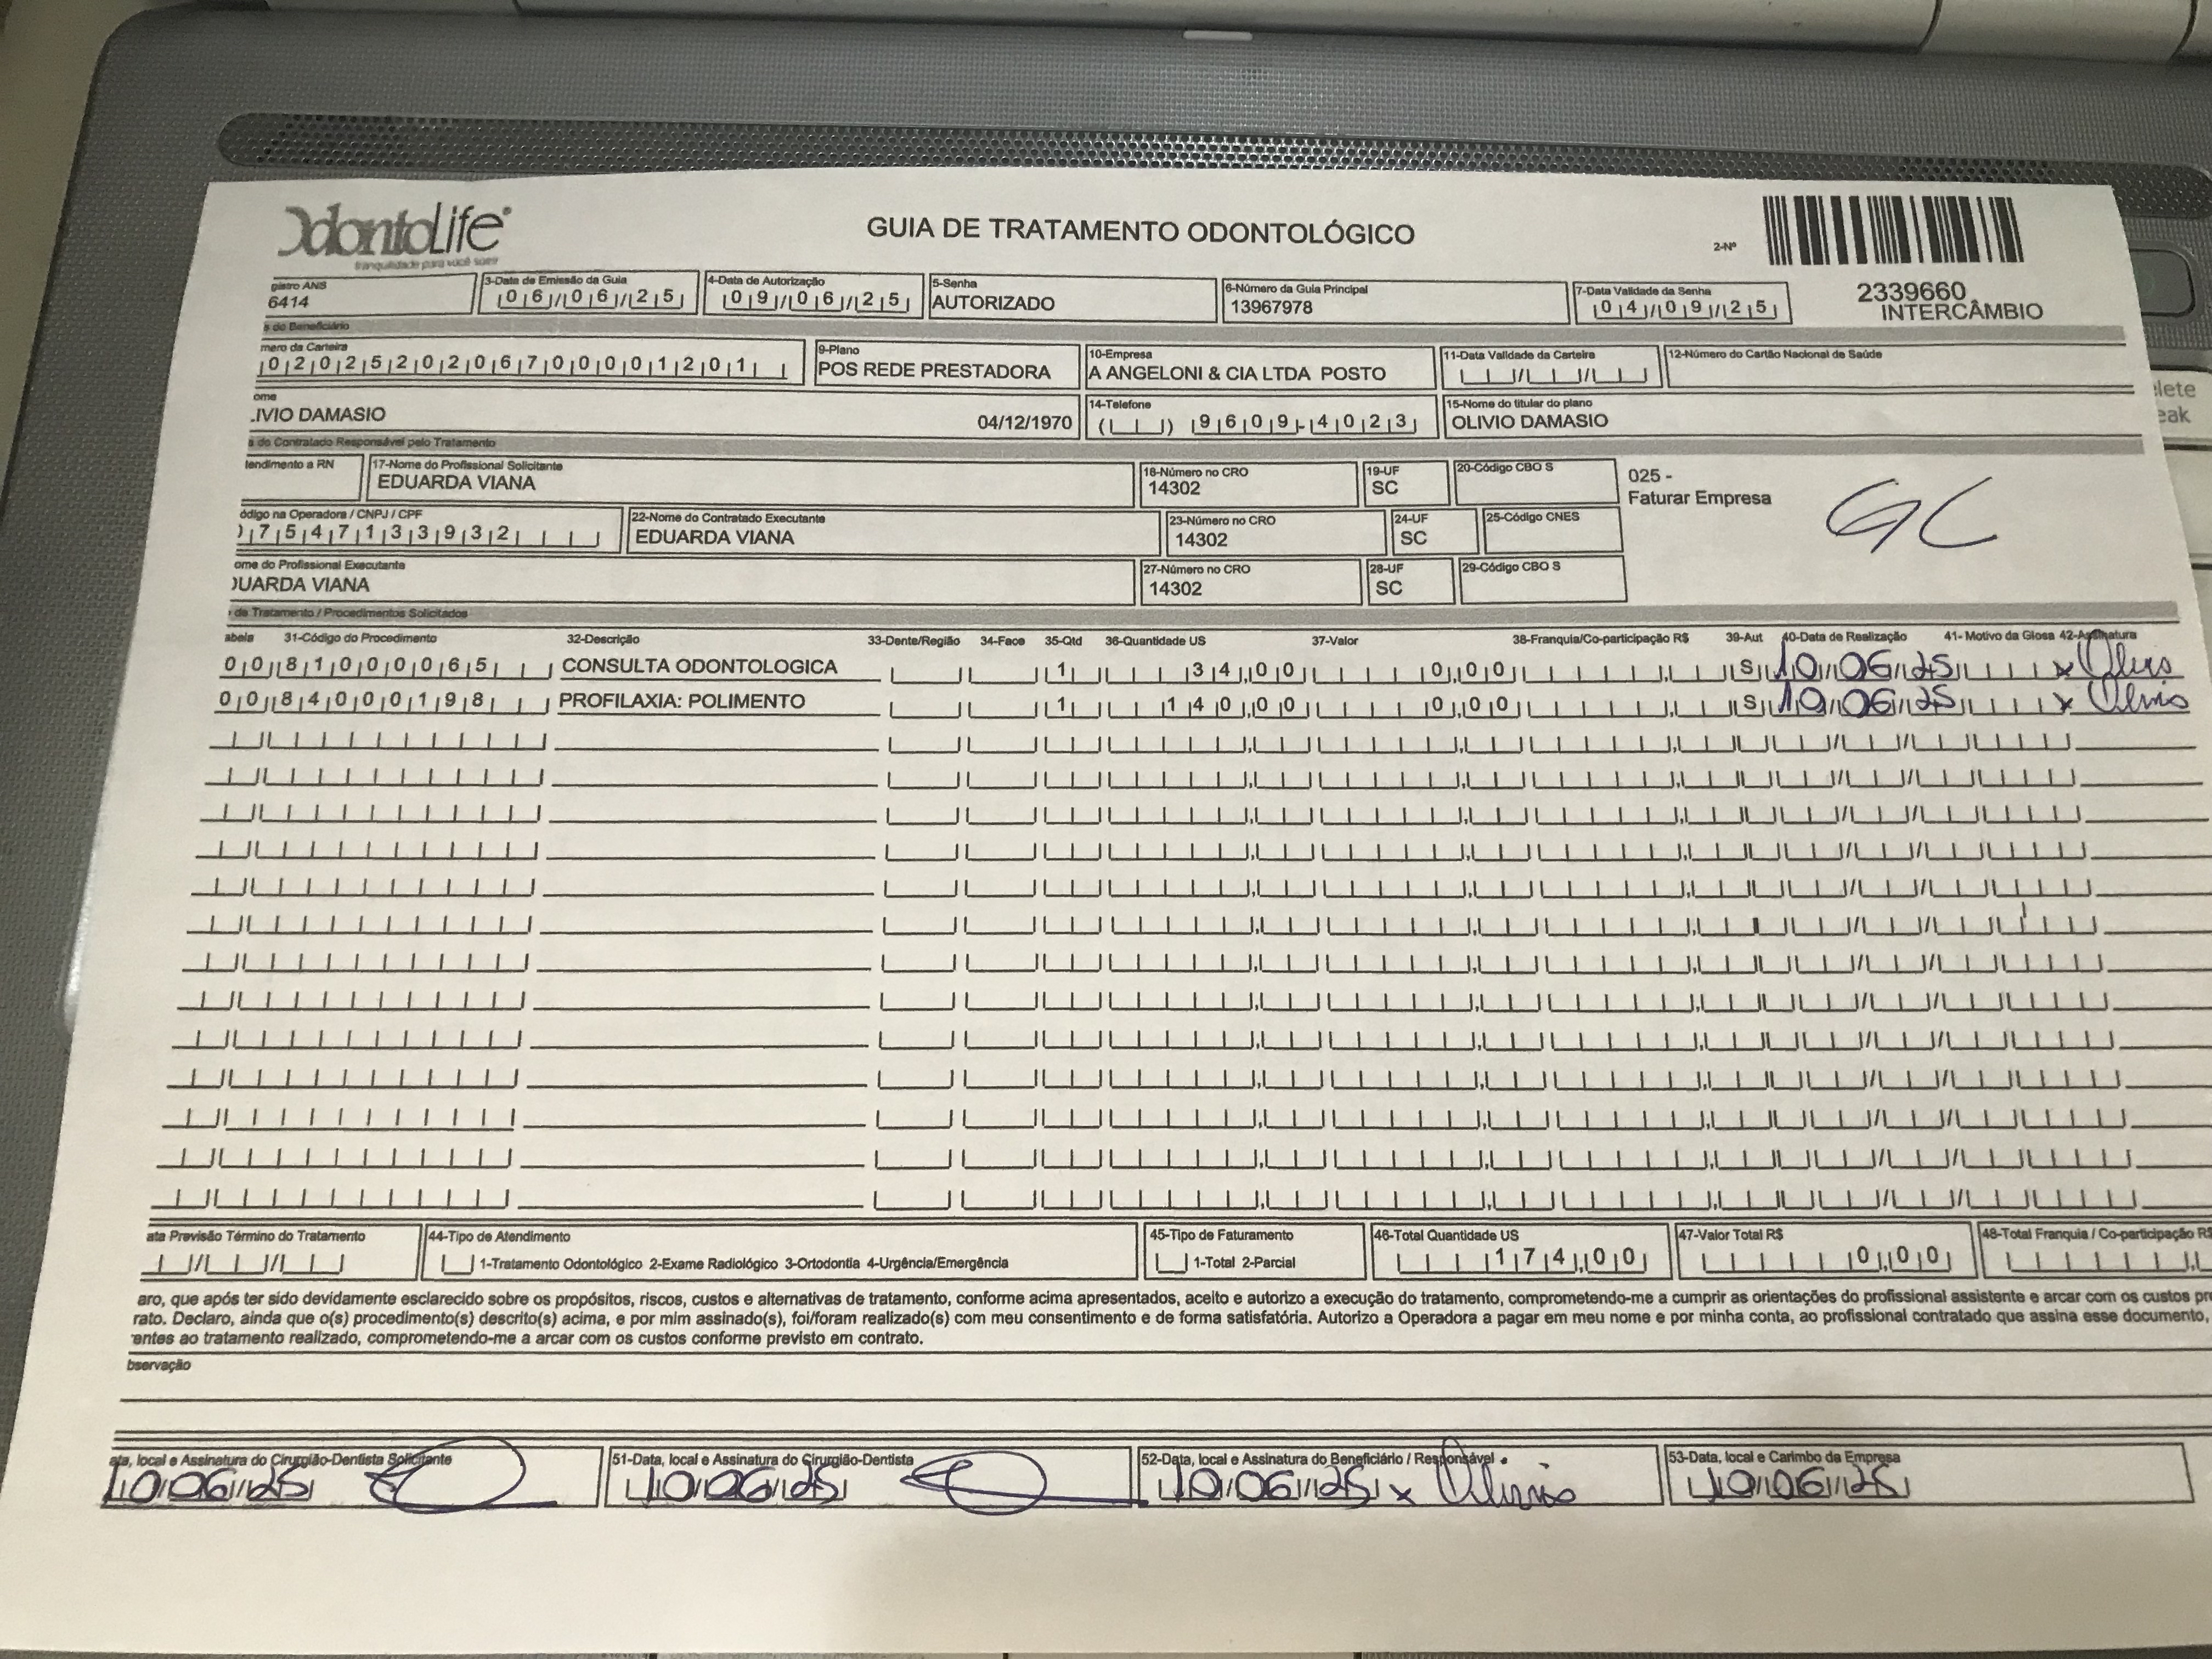 OdontoLife®
tranquilidade para você sorrir
GUIA DE TRATAMENTO ODONTOLÓGICO
2-Nº
2339660
INTERCÂMBIO
gistro ANS
6414
3-Data de Emissão da Guia
06/06/25
4-Data de Autorização
09/06/25
5-Senha
AUTORIZADO
6-Número da Guia Principal
13967978
7-Data Validade da Senha
04/09/25
s do Beneficiário
mero da Carteira
0202520206700001201
9-Plano
POS REDE PRESTADORA
10-Empresa
A ANGELONI & CIA LTDA POSTO
11-Data Validade da Carteira
12-Número do Cartão Nacional de Saúde
ome
LIVIO DAMASIO 04/12/1970
14-Telefone
( ) 9609-4023
15-Nome do titular do plano
OLIVIO DAMASIO
s do Contratado Responsável pelo Tratamento
tendimento a RN
17-Nome do Profissional Solicitante
EDUARDA VIANA
18-Número no CRO
14302
19-UF
SC
20-Código CBO S
025 -
Faturar Empresa
GC
ódigo na Operadora / CNPJ / CPF
07547133932
22-Nome do Contratado Executante
EDUARDA VIANA
23-Número no CRO
14302
24-UF
SC
25-Código CNES
ome do Profissional Executante
DUARDA VIANA
27-Número no CRO
14302
28-UF
SC
29-Código CBO S
de Tratamento / Procedimentos Solicitados
abela 31-Código do Procedimento 32-Descrição 33-Dente/Região 34-Face 35-Qtd 36-Quantidade US 37-Valor 38-Franquia/Co-participação R$ 39-Aut 40-Data de Realização 41- Motivo da Glosa 42-Assinatura
00 81000065 CONSULTA ODONTOLOGICA 1 34,00 0,00 S 10/06/25 x Olivio
00 84000198 PROFILAXIA: POLIMENTO 1 140,00 0,00 S 10/06/25 x Olivio
ata Previsão Término do Tratamento
44-Tipo de Atendimento
1-Tratamento Odontológico 2-Exame Radiológico 3-Ortodontia 4-Urgência/Emergência
45-Tipo de Faturamento
1-Total 2-Parcial
46-Total Quantidade US
174,00
47-Valor Total R$
0,00
48-Total Franquia / Co-participação R$
aro, que após ter sido devidamente esclarecido sobre os propósitos, riscos, custos e alternativas de tratamento, conforme acima apresentados, aceito e autorizo a execução do tratamento, comprometendo-me a cumprir as orientações do profissional assistente e arcar com os custos pre
rato. Declaro, ainda que o(s) procedimento(s) descrito(s) acima, e por mim assinado(s), foi/foram realizado(s) com meu consentimento e de forma satisfatória. Autorizo a Operadora a pagar em meu nome e por minha conta, ao profissional contratado que assina esse documento,
entes ao tratamento realizado, comprometendo-me a arcar com os custos conforme previsto em contrato.
bservação
ata, local e Assinatura do Cirurgião-Dentista Solicitante
10/06/25
51-Data, local e Assinatura do Cirurgião-Dentista
10/06/25
52-Data, local e Assinatura do Beneficiário / Responsável
10/06/25 x Olivio
53-Data, local e Carimbo da Empresa
10/06/25